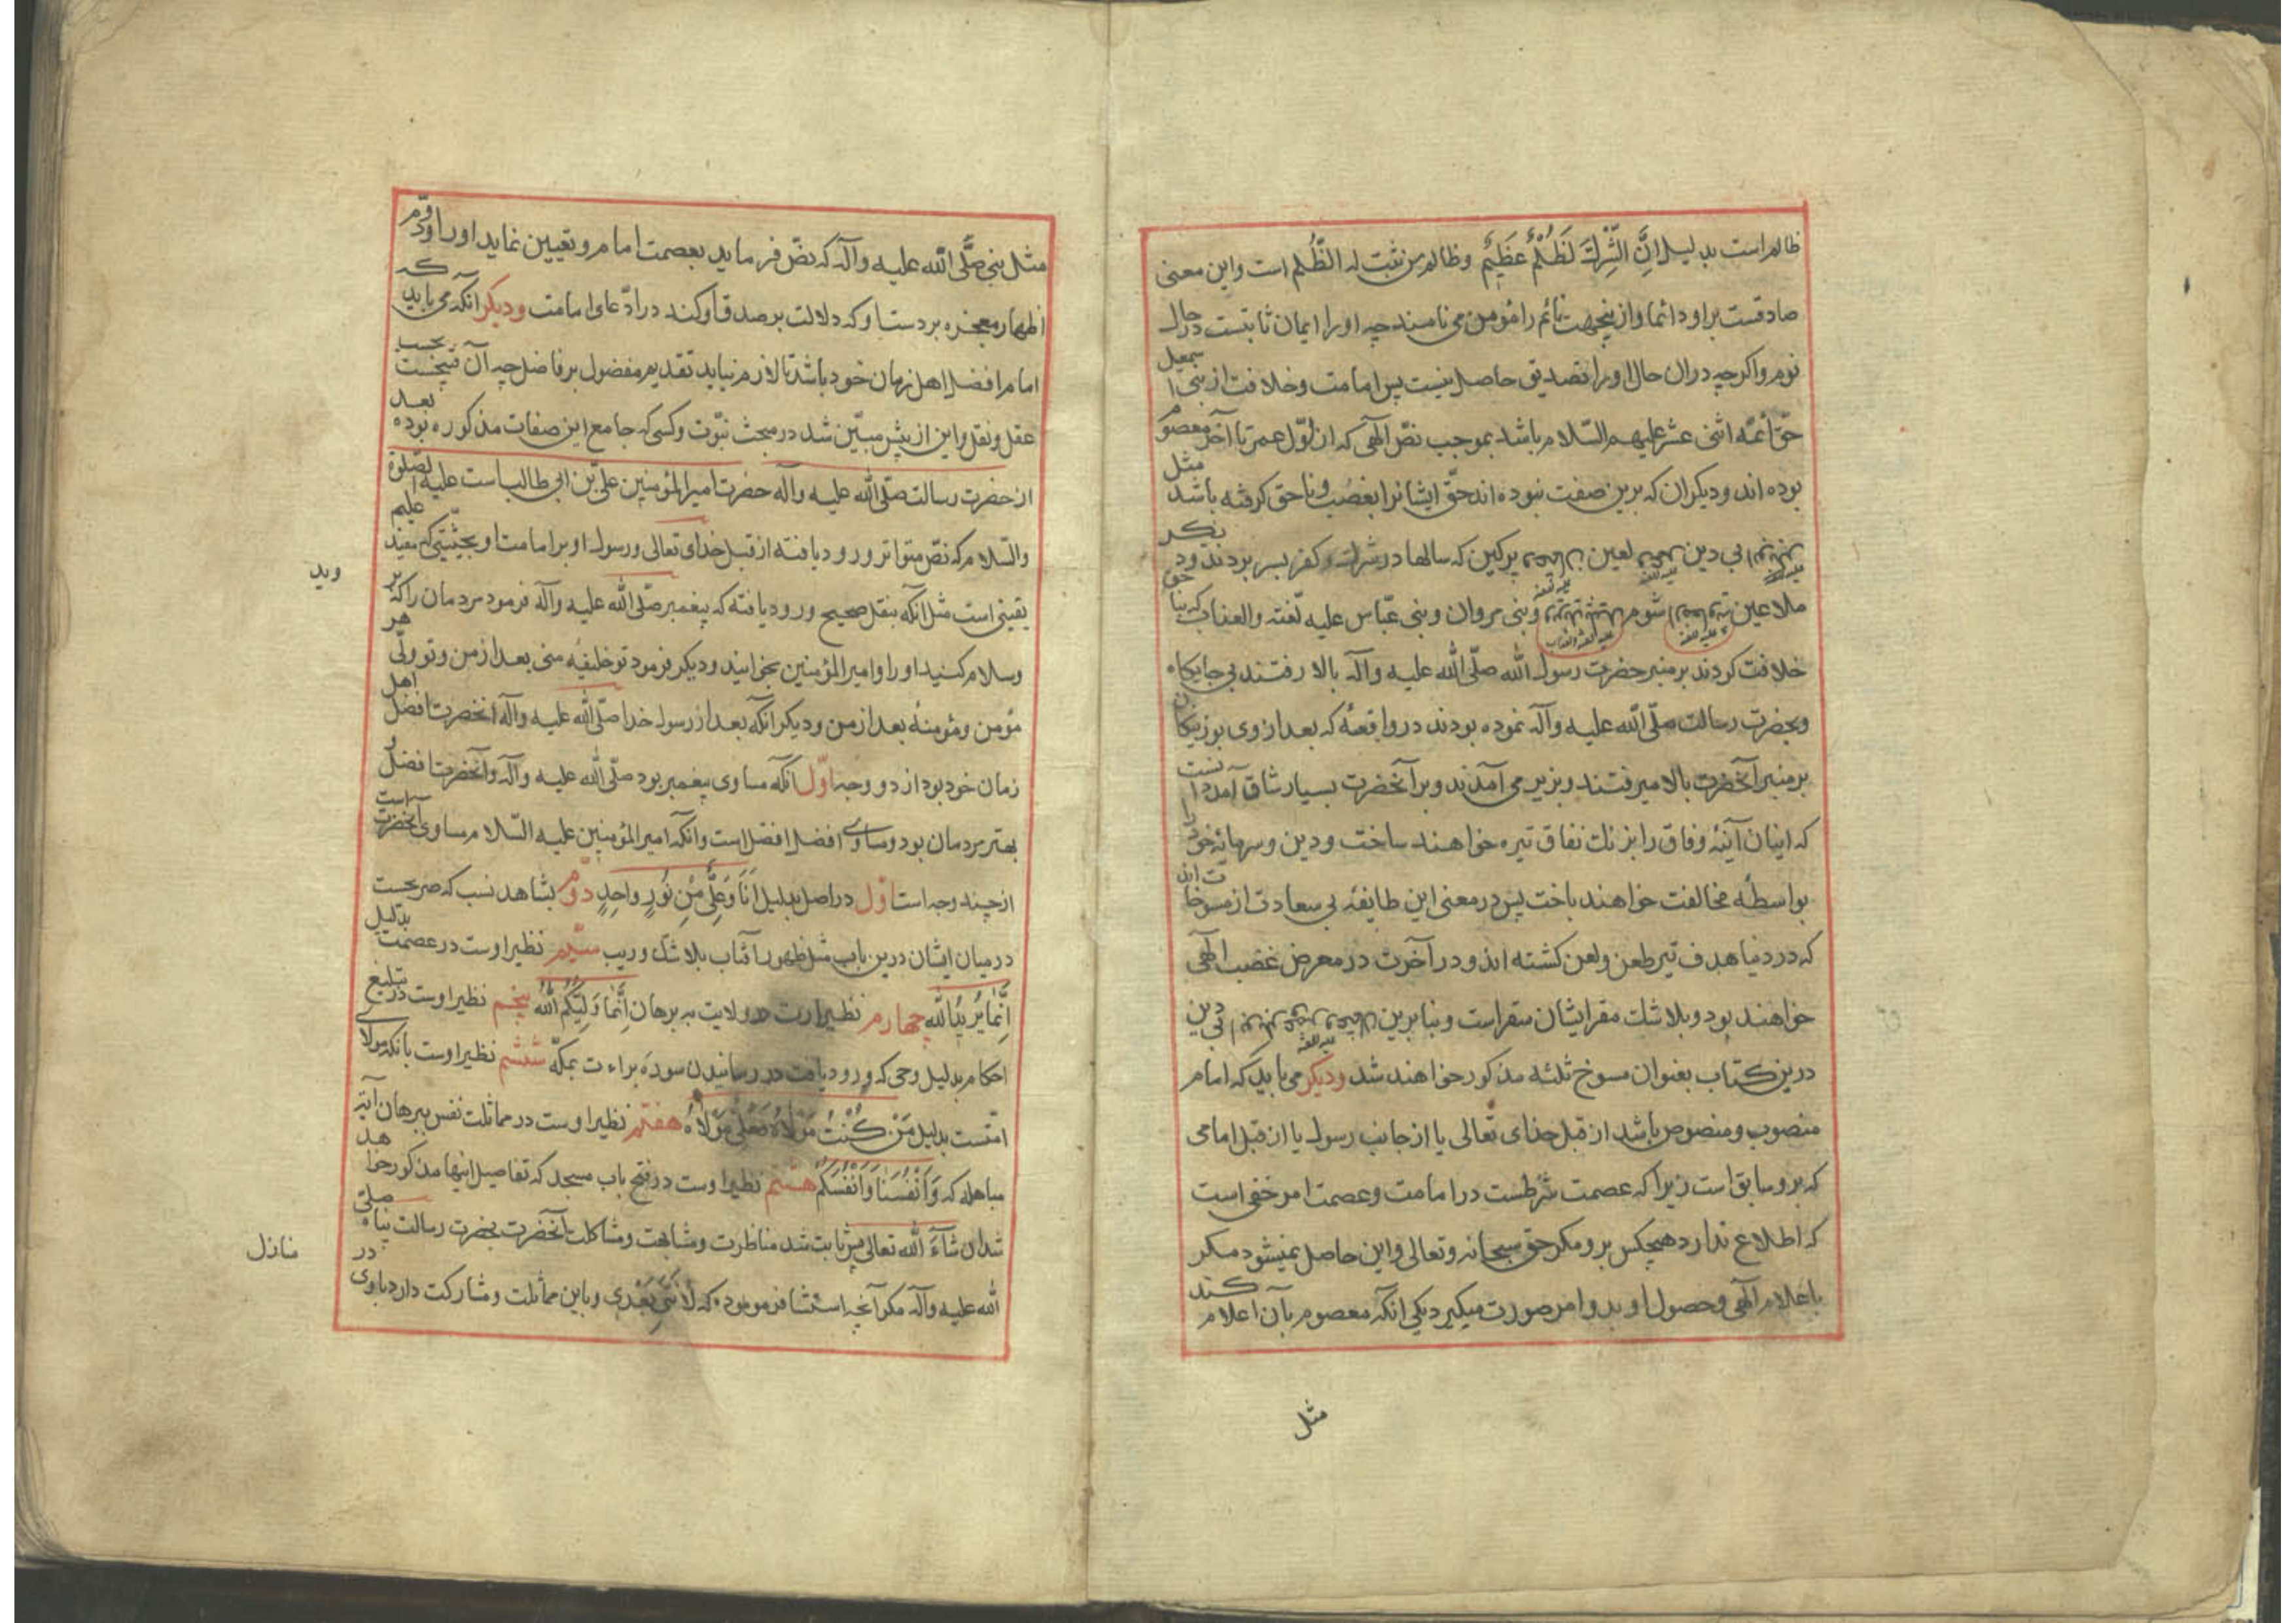 ظالم است بدلیل اِنَّ الشِّرْكَ لَظُلْمٌ عَظِیْمٌ وظالم من ثبت له الظُّلم است واین معنی
صادقست براو دائما وازینجهت نائم را مؤمن می نامند چه اورا ایمان ثابتست در حال
نوم واکرچه دران حال اورا تصدیق حاصل نیست پس امامت وخلافت از بنی اسمعیل
حقّ ائمّه اثنی عشر علیهم السّلام باشد بموجب نصّ آلهی که از اوّل عمر تا آخر معصوم
بوده اند ودیکران که برین صفت نبوده اند حقّ ایشانرا بغصب وناحق کرفته باشند مثل
بی دین لعین پرکین که سالها در شرك وکفر بسر بردند ودیکر
ملاعین شوم وبنی مروان وبنی عبّاس علیه لّعنة والعذاب که بناحق
خلافت کردند بر منبر حضرت رسول الله صلّی الله علیه وآله بالا رفتند بی جایکاه
وبحضرت رسالت صلّی الله علیه وآله نموده بودند در واقعهٔ که بعد از وی بوزینکان
بر منبر آنحضرت بالا میرفتند وبزیر می آمدند وبر آنحضرت بسیار شاق آمد دانست
که اینان آینهٔ وفاق را بزنك نفاق تیره خواهند ساخت ودین وسرمایهٔ خود را
بواسطهٔ مخالفت خواهند باخت پس در معنی این طایفهٔ بی سعادت از مسوخات اند
که در دنیا هدف تیر طعن ولعن کشته اند ودر آخرت در معرض غضب آلهی
خواهند بود وبلاشك مقر ایشان سقر است وبنابرین بی دین
درین کتاب بعنوان مسوخ ثلثه مذکور خواهند شد ودیکر می باید که امام
منصوب ومنصوص باشد از قبل خدای تعالی یا از جانب رسول یا از قبل امامی
که برو سابق است زیرا که عصمت شرطست در امامت وعصمت امر خفی است
که اطلاع ندارد هیچکس برو مکر حق سبحانه وتعالی واین حاصل نمیشود مکر
باعلام آلهی وحصول او بدو امر صورت میکیرد یکی انکه معصوم بآن اعلام کند
مثل
مثل نبی صلَّی الله علیه وآله که نصّ فرماید بعصمت امام وتعیین نماید اورا ودوّم
اظهار معجزه بر دست او که دلالت بر صدق او کند در ادّعای امامت ودیکر انکه می باید که
امام افضل اهل زمان خود باشد تا لازم نیاید تقدیم مفضول بر فاضل چه آن قبیحست بحسب
عقل ونقل واین از پیش مبیّن شد در مبحث نبوّت وکسی که جامع این صفات مذکوره بوده بعد
از حضرت رسالت صلّی الله علیه وآله حضرت امیر المؤمنین علیّ بن ابی طالب است علیه الصّلوة
والسّلام که نصّ متواتر ورود یافته از قبل خدای تعالی ورسول او بر امامت او بحیثیّتی که مفید علم
یقینی است مثل انکه بنقل صحیح ورود یافته که پیغمبر صلّی الله علیه وآله فرمود مردمان را که بر
وید
وسلام کنید اورا وامیر المؤمنین بخوانید ودیکر فرمود تو خلیفهٔ منی بعد از من وتو ولّی هر
مؤمن ومؤمنهٔ بعد از من ودیکر انکه بعد از رسول خدا صلّی الله علیه وآله آنحضرت افضل اهل
زمان خود بود از دو وجه اوّل انکه مساوی پیغمبر بود صلّی الله علیه وآله وآنحضرت افضل و
بهتر مردمان بود ومساوی افضل افضل است وانکه امیر المؤمنین علیه السّلام مساوی آنحضرت است
از چند وجه است اوّل در اصل بدلیل اَنَا وَعَلِیٌّ مِنْ نُورٍ واحِدٍ دوّم بشاهد نسب که صریحست
در میان ایشان درین باب مثل ظهور آفتاب بلاشك وریب سیّم نظیر اوست در عصمت بدلیل
اِنَّمَا یُرِیْدُ اللّٰه چهارم نظیر اوست در ولایت به برهان اِنَّمَا وَلِیُّکُمُ اللّٰهُ پنجم نظیر اوست در تبلیغ
احکام بدلیل وحی که ورود یافت در رسانیدن سورهٔ براءت بمکّه ششم نظیر اوست بانکه مولای
امّتست بدلیل مَنْ کُنْتُ مَوْلاهُ فَعَلِیٌّ مَوْلاهُ هفتم نظیر اوست در مماثلت نفس ببرهان آیهٔ
مباهله که وَاَنْفُسَنَا وَاَنْفُسَکُمْ هشتم نظیر اوست در فتح باب مسجد که تفاصیل اینها مذکور خواهد
شد ان شآءَ الله تعالی پس ثابت شد مناظرت ومشابهت ومشاکلت آنحضرت بحضرت رسالت پناه صلّی
الله علیه وآله مکر آنچه استثنا فرموده که لا نَبِیَّ بَعْدِی وباین مماثلت ومشارکت دارد باوی در
منازل